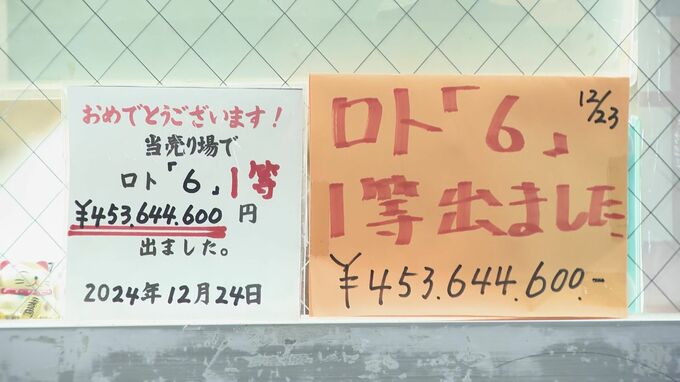 おめでとうございます!
当売り場で
ロト「6」1等
¥453,644,600円
出ました。
2024年12月24日
12/23
ロト「6」
1等出ました
¥453.644.600.-